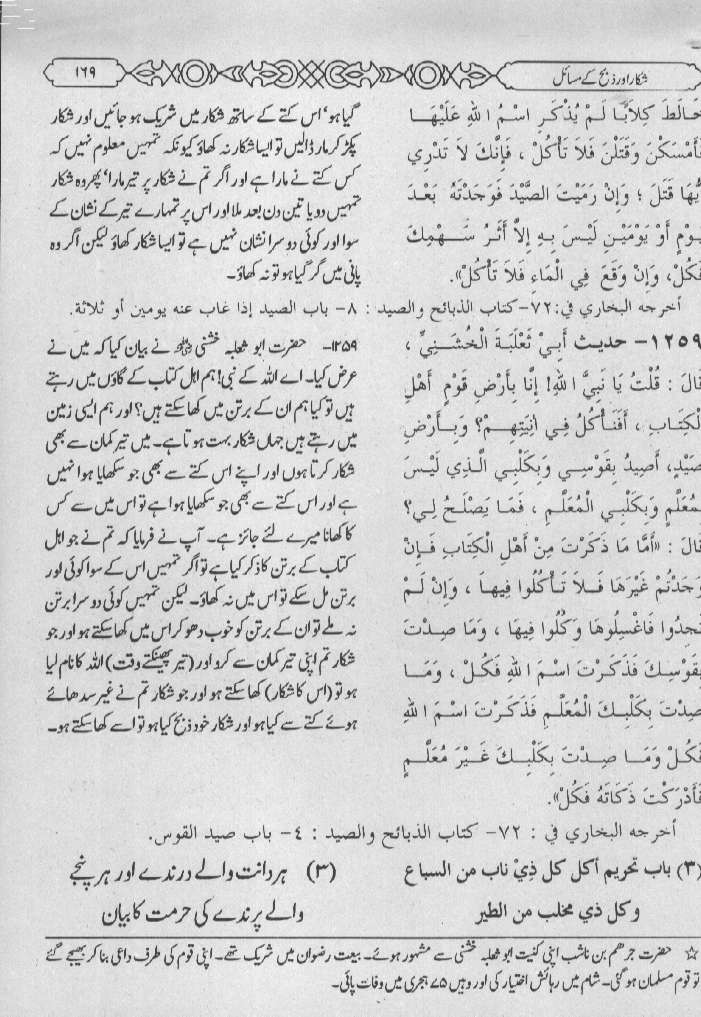 شکار اور ذبح کے مسائل
۱۶۹
خَالَطَ كِلَابًا لَمْ يُذْكَرِ اسْمُ اللهِ عَلَيْهَا
فَأَمْسَكْنَ وَقَتَلْنَ فَلَا تَأْكُلْ ، فَإِنَّكَ لَا تَدْرِي
يُّهَا قَتَلَ ؛ وَإِنْ رَمَيْتَ الصَّيْدَ فَوَجَدْتَهُ بَعْدَ
يَوْمٍ أَوْ يَوْمَيْنِ لَيْسَ بِهِ إِلاَّ أَثَرُ سَهْمِكَ
فَكُلْ، وَإِنْ وَقَعَ فِي الْمَاءِ فَلَا تَأْكُلْ».
گیا ہو' اس کتے کے ساتھ شکار میں شریک ہو جائیں اور شکار
پکڑ کر مار ڈالیں تو ایسا شکار نہ کھاؤ کیونکہ تمہیں معلوم نہیں کہ
کس کتے نے مارا ہے اور اگر تم نے شکار پر تیر مارا' پھر وہ شکار
تمہیں دو یا تین دن بعد ملا اور اس پر تمہارے تیر کے نشان کے
سوا اور کوئی دوسرا نشان نہیں ہے تو ایسا شکار کھاؤ لیکن اگر وہ
پانی میں گر گیا ہو تو نہ کھاؤ۔
أخرجه البخاري في: ۷۲- كتاب الذبائح والصيد : ۸- باب الصيد إذا غاب عنه يومين أو ثلاثة.
۱۲۵۹- حديث أَبِيْ ثَعْلَبَةَ الْخُشَنِيِّ ،
قَالَ : قُلْتُ يَا نَبِيَّ اللهِ! إِنَّا بِأَرْضِ قَوْمٍ أَهْلِ
لْكِتَابِ ، أَفَنَأْكُلُ فِي آنِيَتِهِمْ؟ وَبِأَرْضِ
صَيْدٍ، أَصِيدُ بِقَوْسِي وَبِكَلْبِي الَّذِي لَيْسَ
بِمُعَلَّمٍ وَبِكَلْبِي الْمُعَلَّمِ ، فَمَا يَصْلُحُ لِي؟
قَالَ : «أَمَّا مَا ذَكَرْتَ مِنْ أَهْلِ الْكِتَابِ فَإِنْ
وَجَدْتُمْ غَيْرَهَا فَلَا تَأْكُلُوا فِيهَا ، وَإِنْ لَمْ
تَجِدُوا فَاغْسِلُوهَا وَكُلُوا فِيهَا ، وَمَا صِدْتَ
بِقَوْسِكَ فَذَكَرْتَ اسْمَ اللهِ فَكُلْ ، وَمَا
صِدْتَ بِكَلْبِكَ الْمُعَلَّمِ فَذَكَرْتَ اسْمَ اللهِ
فَكُلْ وَمَا صِدْتَ بِكَلْبِكَ غَيْرَ مُعَلَّمٍ
فَأَدْرَكْتَ ذَكَاتَهُ فَكُلْ».
۱۲۵۹- حضرت ابو ثعلبہ خشنی رضی اللہ عنہ نے بیان کیا کہ میں نے
عرض کیا۔ اے اللہ کے نبی! ہم اہل کتاب کے گاؤں میں رہتے
ہیں تو کیا ہم ان کے برتن میں کھا سکتے ہیں؟ اور ہم ایسی زمین
میں رہتے ہیں جہاں شکار بہت ہوتا ہے۔ میں تیر کمان سے بھی
شکار کرتا ہوں اور اپنے اس کتے سے بھی جو سکھایا ہوا نہیں
ہے اور اس کتے سے بھی جو سکھایا ہوا ہے تو اس میں سے کس
کا کھانا میرے لئے جائز ہے۔ آپ نے فرمایا کہ تم نے جو اہل
کتاب کے برتن کا ذکر کیا ہے تو اگر تمہیں اس کے سوا کوئی اور
برتن مل سکے تو اس میں نہ کھاؤ۔ لیکن تمہیں کوئی دوسرا برتن
نہ ملے تو ان کے برتن کو خوب دھو کر اس میں کھا سکتے ہو اور جو
شکار تم اپنی تیر کمان سے کرو اور (تیر پھینکتے وقت) اللہ کا نام لیا
ہو تو (اس کا شکار) کھا سکتے ہو اور جو شکار تم نے غیر سدھائے
ہوئے کتے سے کیا ہو اور شکار خود ذبح کیا ہو تو اسے کھا سکتے ہو۔
أخرجه البخاري في : ۷۲- كتاب الذبائح والصيد : ٤- باب صيد القوس.
(۳) باب تحريم أكل كل ذِيْ ناب من السباع
وكل ذي مخلب من الطير
(۳) ہر دانت والے درندے اور ہر پنجے
والے پرندے کی حرمت کا بیان
☆ حضرت جرھم بن ناشب اپنی کنیت ابو ثعلبہ خشنی سے مشہور ہوئے۔ بیعت رضوان میں شریک تھے۔ اپنی قوم کی طرف داعی بنا کر بھیجے گئے
تو قوم مسلمان ہو گئی۔ شام میں رہائش اختیار کی اور وہیں ۷۵ ہجری میں وفات پائی۔